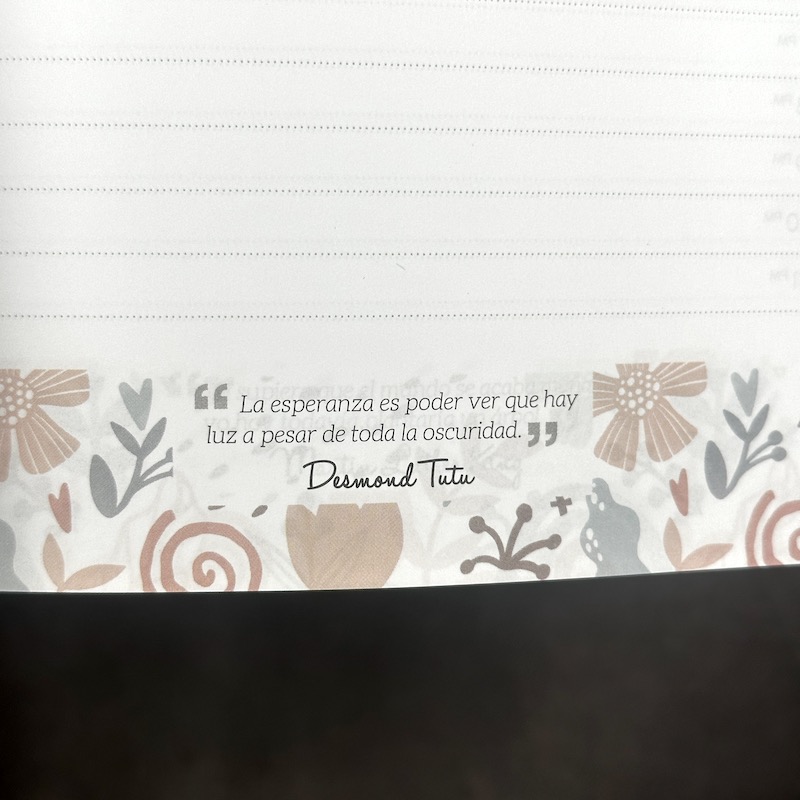 “ La esperanza es poder ver que hay
luz a pesar de toda la oscuridad. ”
Desmond Tutu